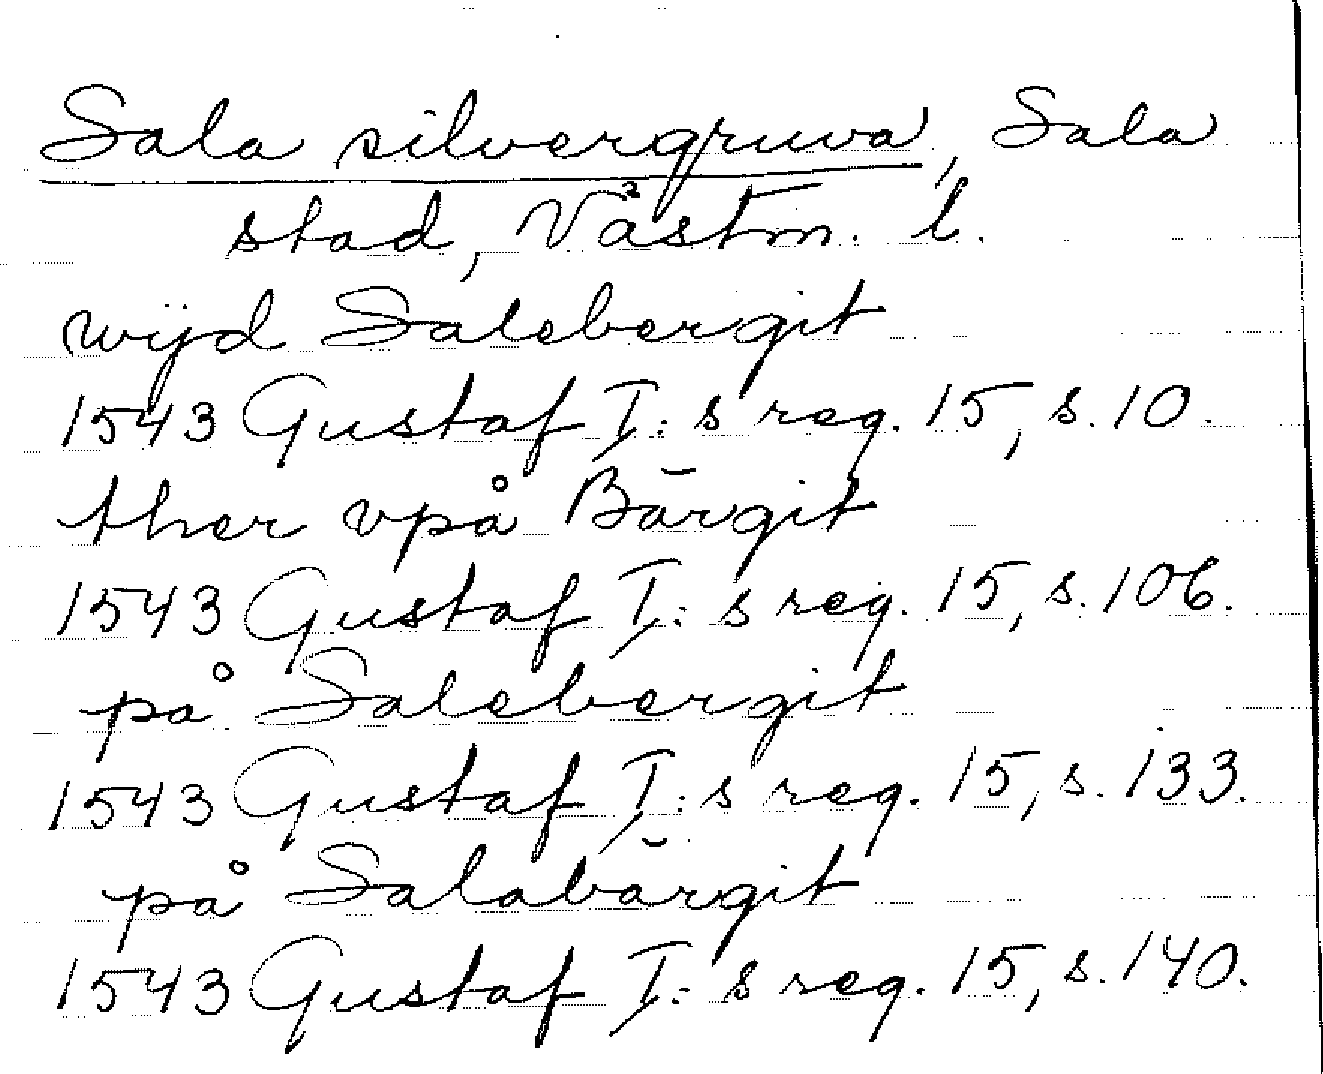 Sala silvergruva, Sala
stad, Västm. l.
wijd Salebergit
1543 Gustaf I:s reg. 15, s. 10.
ther vpå Bärgit
1543 Gustaf I:s reg. 15, s. 106.
på Salebergit
1543 Gustaf I:s reg. 15, s. 133.
på Salabärgit
1543 Gustaf I:s reg. 15, s. 140.